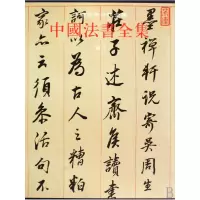 中國法書全集
墨禪軒說寄吳周生
莊子述齊侯讀書
訶以為古人之糟粕
家亦云須參活句不